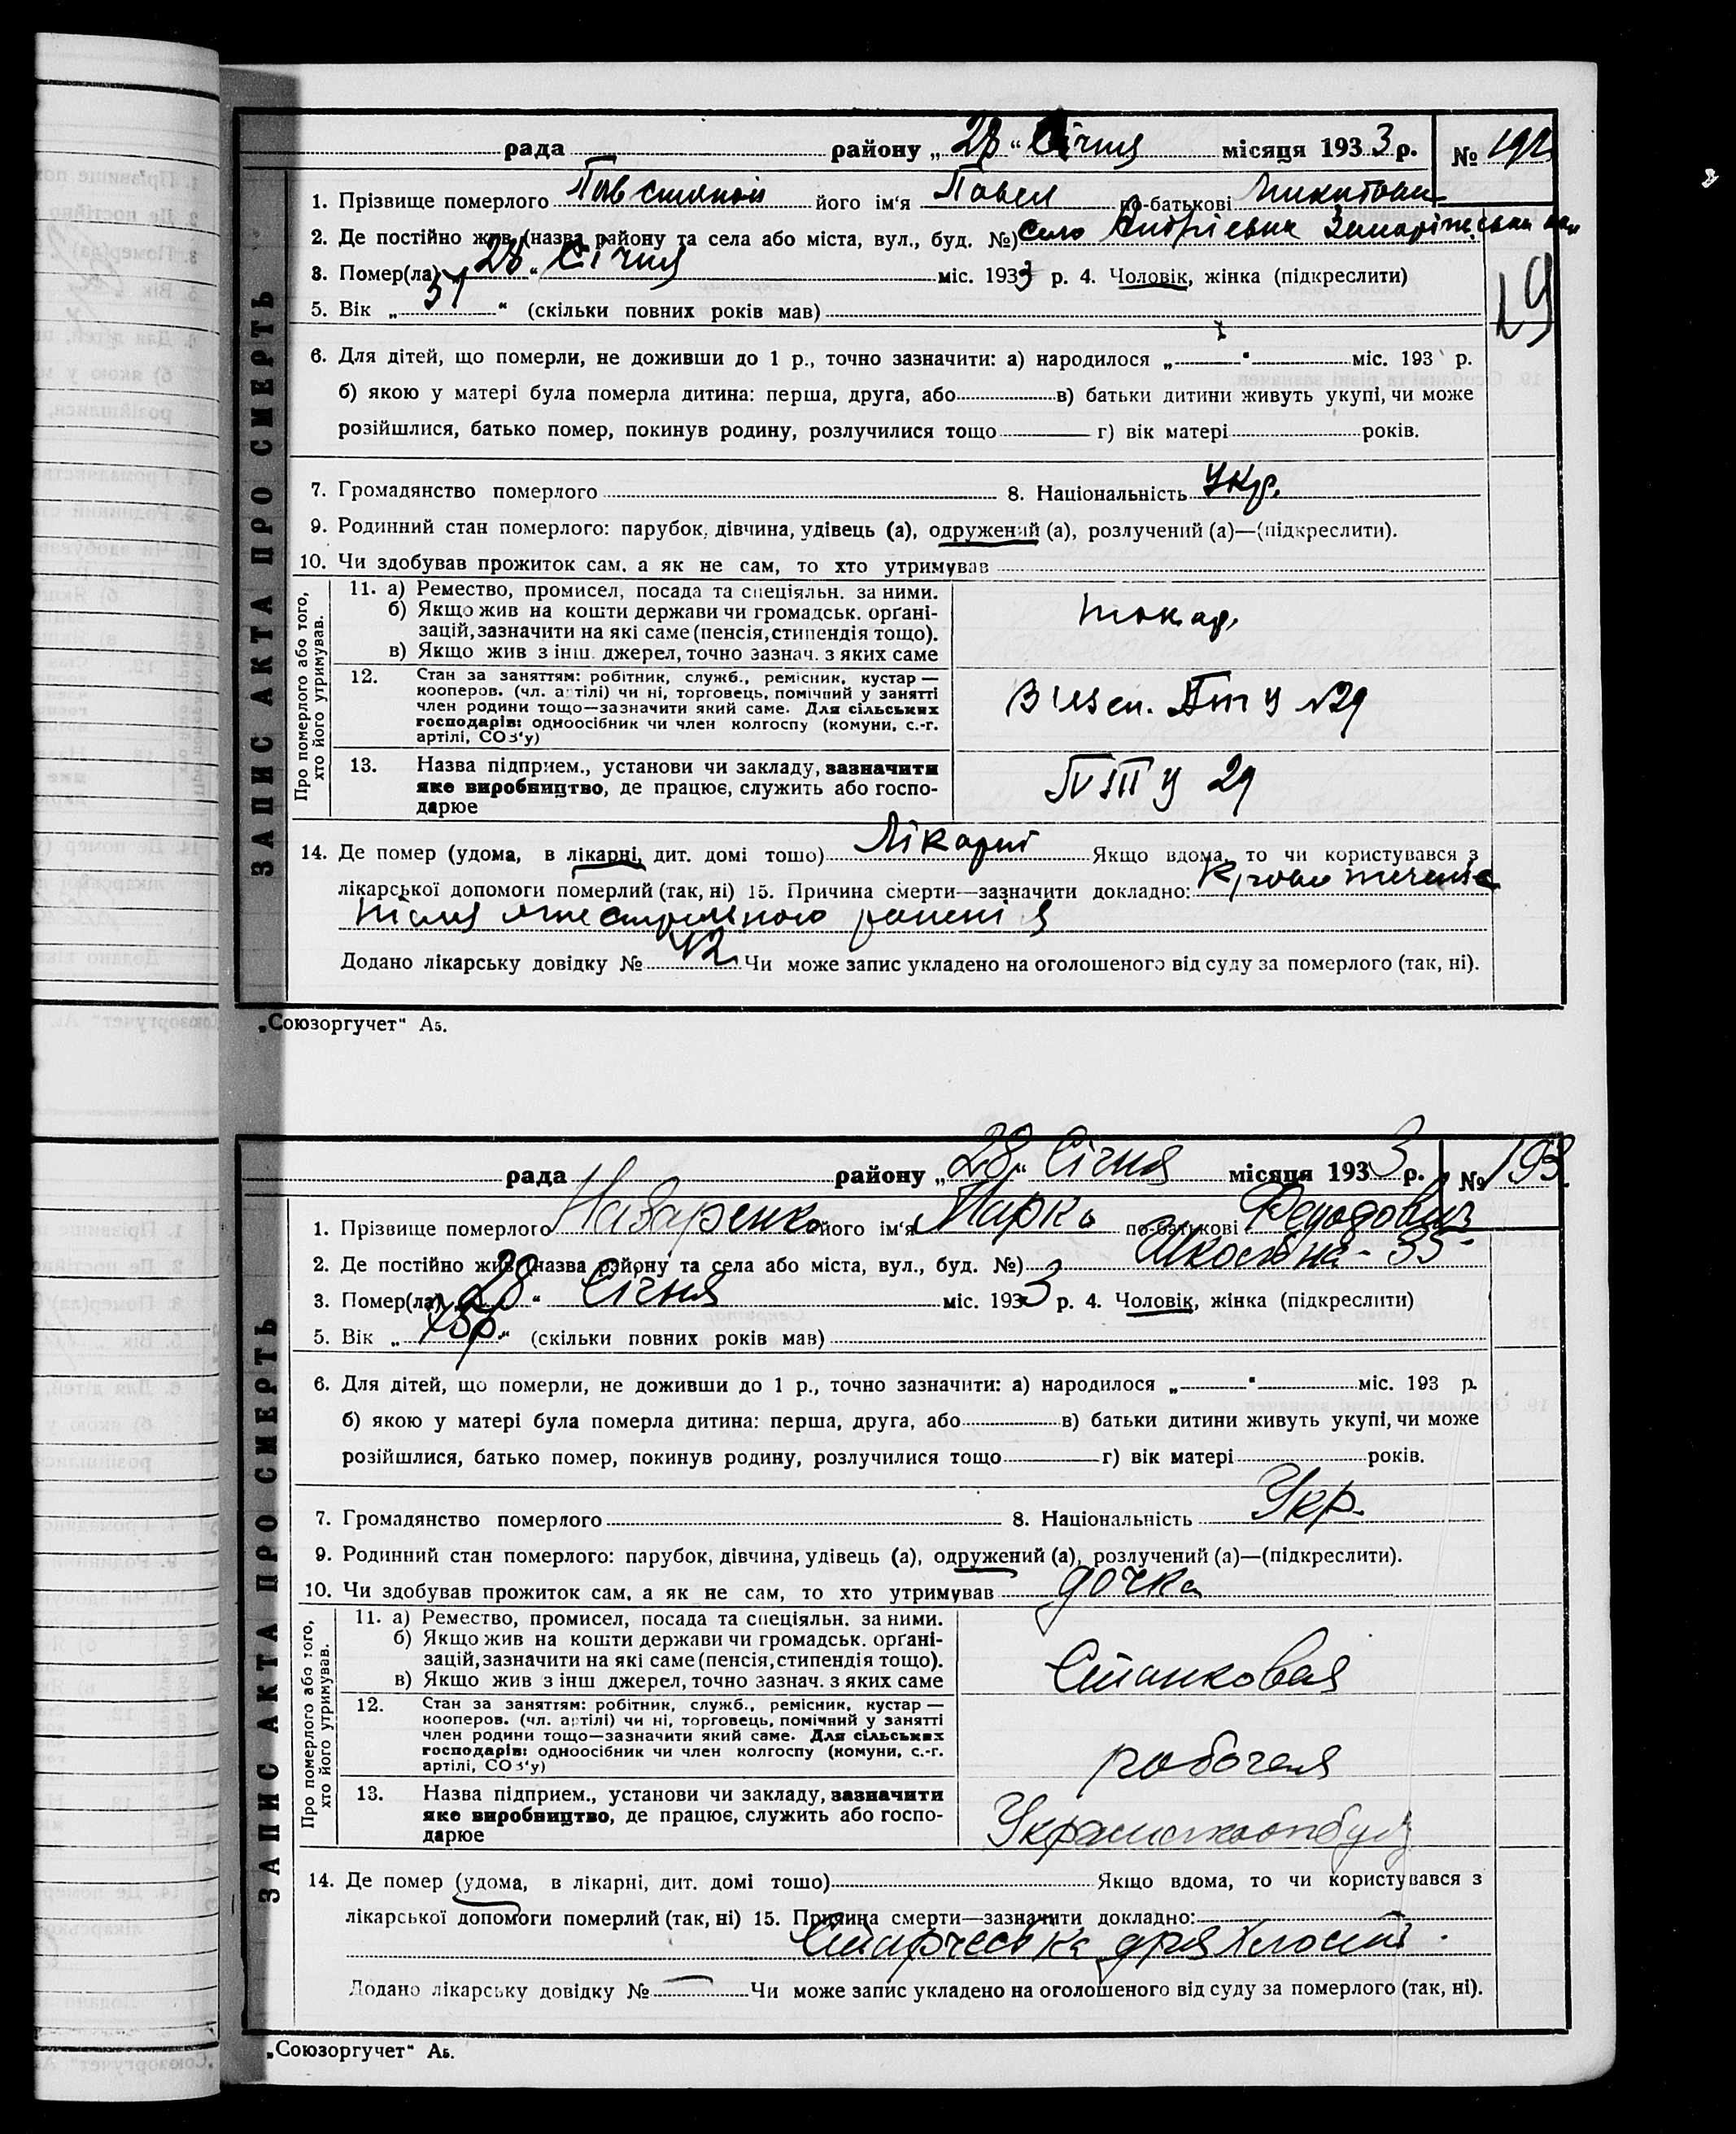 рада району „28“ Січня місяця 1933 р. № 192
1. Прізвище померлого його ім'я Павел по-батькові
2. Де постійно жив (назва району та села або міста, вул., буд. №) село
3. Помер(ла) „28“ Січня міс. 1933 р. 4. Чоловік, жінка (підкреслити)
19
5. Вік „37“ (скільки повних років мав)
6. Для дітей, що померли, не доживши до 1 р., точно зазначити: а) народилося „ “ міс. 193 р.
б) якою у матері була померла дитина: перша, друга, або в) батьки дитини живуть укупі, чи може
розійшлися, батько помер, покинув родину, розлучилися тощо г) вік матері років.
7. Громадянство померлого 8. Національність Укр.
9. Родинний стан померлого: парубок, дівчина, удівець (а), одружений (а), розлучений (а)—(підкреслити).
10. Чи здобував прожиток сам, а як не сам, то хто утримував
ЗАПИС АКТА ПРО СМЕРТЬ
Про померлого або того,
хто його утримував.
11. а) Ремество, промисел, посада та спеціяльн. за ними.
б) Якщо жив на кошти держави чи громадськ. орґані-
зацій, зазначити на які саме (пенсія, стипендія тощо).
в) Якщо жив з інш. джерел, точно зазнач. з яких саме
токар.
12. Стан за заняттям: робітник, служб., ремісник, кустар —
кооперов. (чл. артілі) чи ні, торговець, помічний у занятті
член родини тощо—зазначити який саме. Для сільських
господарів: одноосібник чи член колгоспу (комуни, с.-г.
артілі, СОЗ'у)
№29
13. Назва підприєм., установи чи закладу, зазначити
яке виробництво, де працює, служить або госпо-
дарюе
29
14. Де помер (удома, в лікарні, дит. домі тошо) Лікарні Якщо вдома, то чи користувався з
лікарської допомоги померлий (так, ні) 15. Причина смерти—зазначити докладно:
після огнестрельного раненія
Додано лікарську довідку № 42 Чи може запис укладено на оголошеного від суду за померлого (так, ні).
„Союзоргучет“ А5.
рада району „28“ Січня місяця 1933 р. № 193.
1. Прізвище померлого Назаренко його ім'я Марко по-батькові Федодович
2. Де постійно жив (назва району та села або міста, вул., буд. №) 35
3. Помер(ла) „28“ Січня міс. 1933 р. 4. Чоловік, жінка (підкреслити)
5. Вік „75р.“ (скільки повних років мав)
6. Для дітей, що померли, не доживши до 1 р., точно зазначити: а) народилося „ “ міс. 193 р.
б) якою у матері була померла дитина: перша, друга, або в) батьки дитини живуть укупі, чи може
розійшлися, батько помер, покинув родину, розлучилися тощо г) вік матері років.
7. Громадянство померлого 8. Національність Укр.
9. Родинний стан померлого: парубок, дівчина, удівець (а), одружений (а), розлучений (а)—(підкреслити).
10. Чи здобував прожиток сам, а як не сам, то хто утримував дочка
ЗАПИС АКТА ПРО СМЕРТЬ
Про померлого або того,
хто його утримував.
11. а) Ремество, промисел, посада та спеціяльн. за ними.
б) Якщо жив на кошти держави чи громадськ. орґані-
зацій, зазначити на які саме (пенсія, стипендія тощо).
в) Якщо жив з інш джерел, точно зазнач. з яких саме
Станковая
12. Стан за заняттям: робітник, служб., ремісник, кустар —
кооперов. (чл. артілі) чи ні, торговець, помічний у занятті
член родини тощо—зазначити який саме. Для сільських
господарів: одноосібник чи член колгоспу (комуни, с.-г.
артілі, СОЗ'у)
робочая
13. Назва підприєм., установи чи закладу, зазначити
яке виробництво, де працює, служить або госпо-
дарюе
14. Де помер (удома, в лікарні, дит. домі тошо) Якщо вдома, то чи користувався з
лікарської допомоги померлий (так, ні) 15. Причина смерти—зазначити докладно:
Старческа дряхлость.
Додано лікарську довідку № Чи може запис укладено на оголошеного від суду за померлого (так, ні).
„Союзоргучет“ А5.